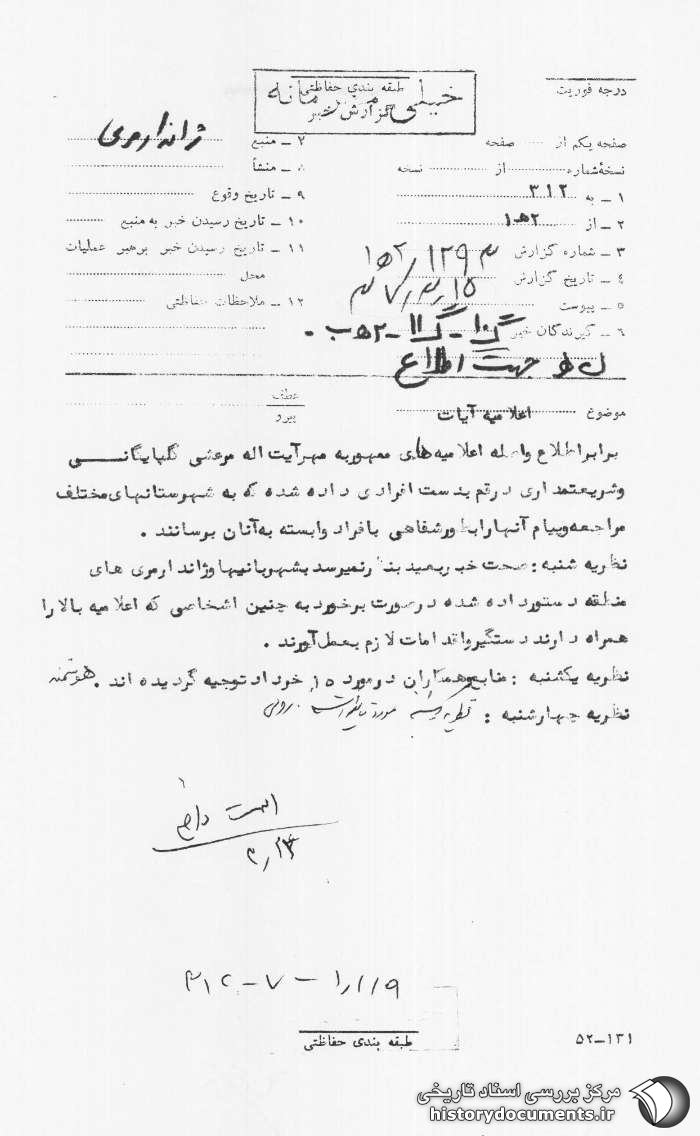 طبقه بندی حفاظتی
خیلی محرمانه
گزارش خبر
درجه فوریت
صفحه یکم از ........ صفحه
نسخهٔ شماره ........ از ........ نسخه
۱ ـ به ۳۱۲
۲ ـ از ۵۲ ۱
۳ ـ شماره گزارش
۴ ـ تاریخ گزارش
۵ ـ پیوست
۶ ـ گیرندگان خبر
جهت اطلاع
۷ ـ منبع ژاندارمری
۸ ـ منشأ
۹ ـ تاریخ وقوع
۱۰ ـ تاریخ رسیدن خبر به منبع
۱۱ ـ تاریخ رسیدن خبر برهبر عملیات
محل
۱۲ ـ ملاحظات حفاظتی
موضوع اعلامیه آیات
عطف
پیرو
برابر اطلاع واصله اعلامیه های ممهور به مهر آیت اله مرعشی گلپایگانسی
و شریعتمداری در قم بدست افرادی داده شده که به شهرستانهای مختلف
مراجعه و پیام آنها را بطور شفاهی بافراد وابسته به آنان برسانند .
نظریه شنبه : صحت خبر بعید بنظر نمیرسد بشهربانیها و ژاندارمری های
منطقه دستور داده شده در صورت برخورد به چنین اشخاصی که اعلامیه بالا را
همراه دارند دستگیر و اقدامات لازم بعمل آورند .
نظریه یکشنبه : منابع و همکاران در مورد ۱۵ خرداد توجیه گردیده اند . هوشمند
نظریه چهارشنبه : نظریه یکشنبه مورد تایید است
۳۱۲ - ۷ -
طبقه بندی حفاظتی
۵۲-۱۳۱
مرکز بررسی اسناد تاریخی
historydocuments.ir